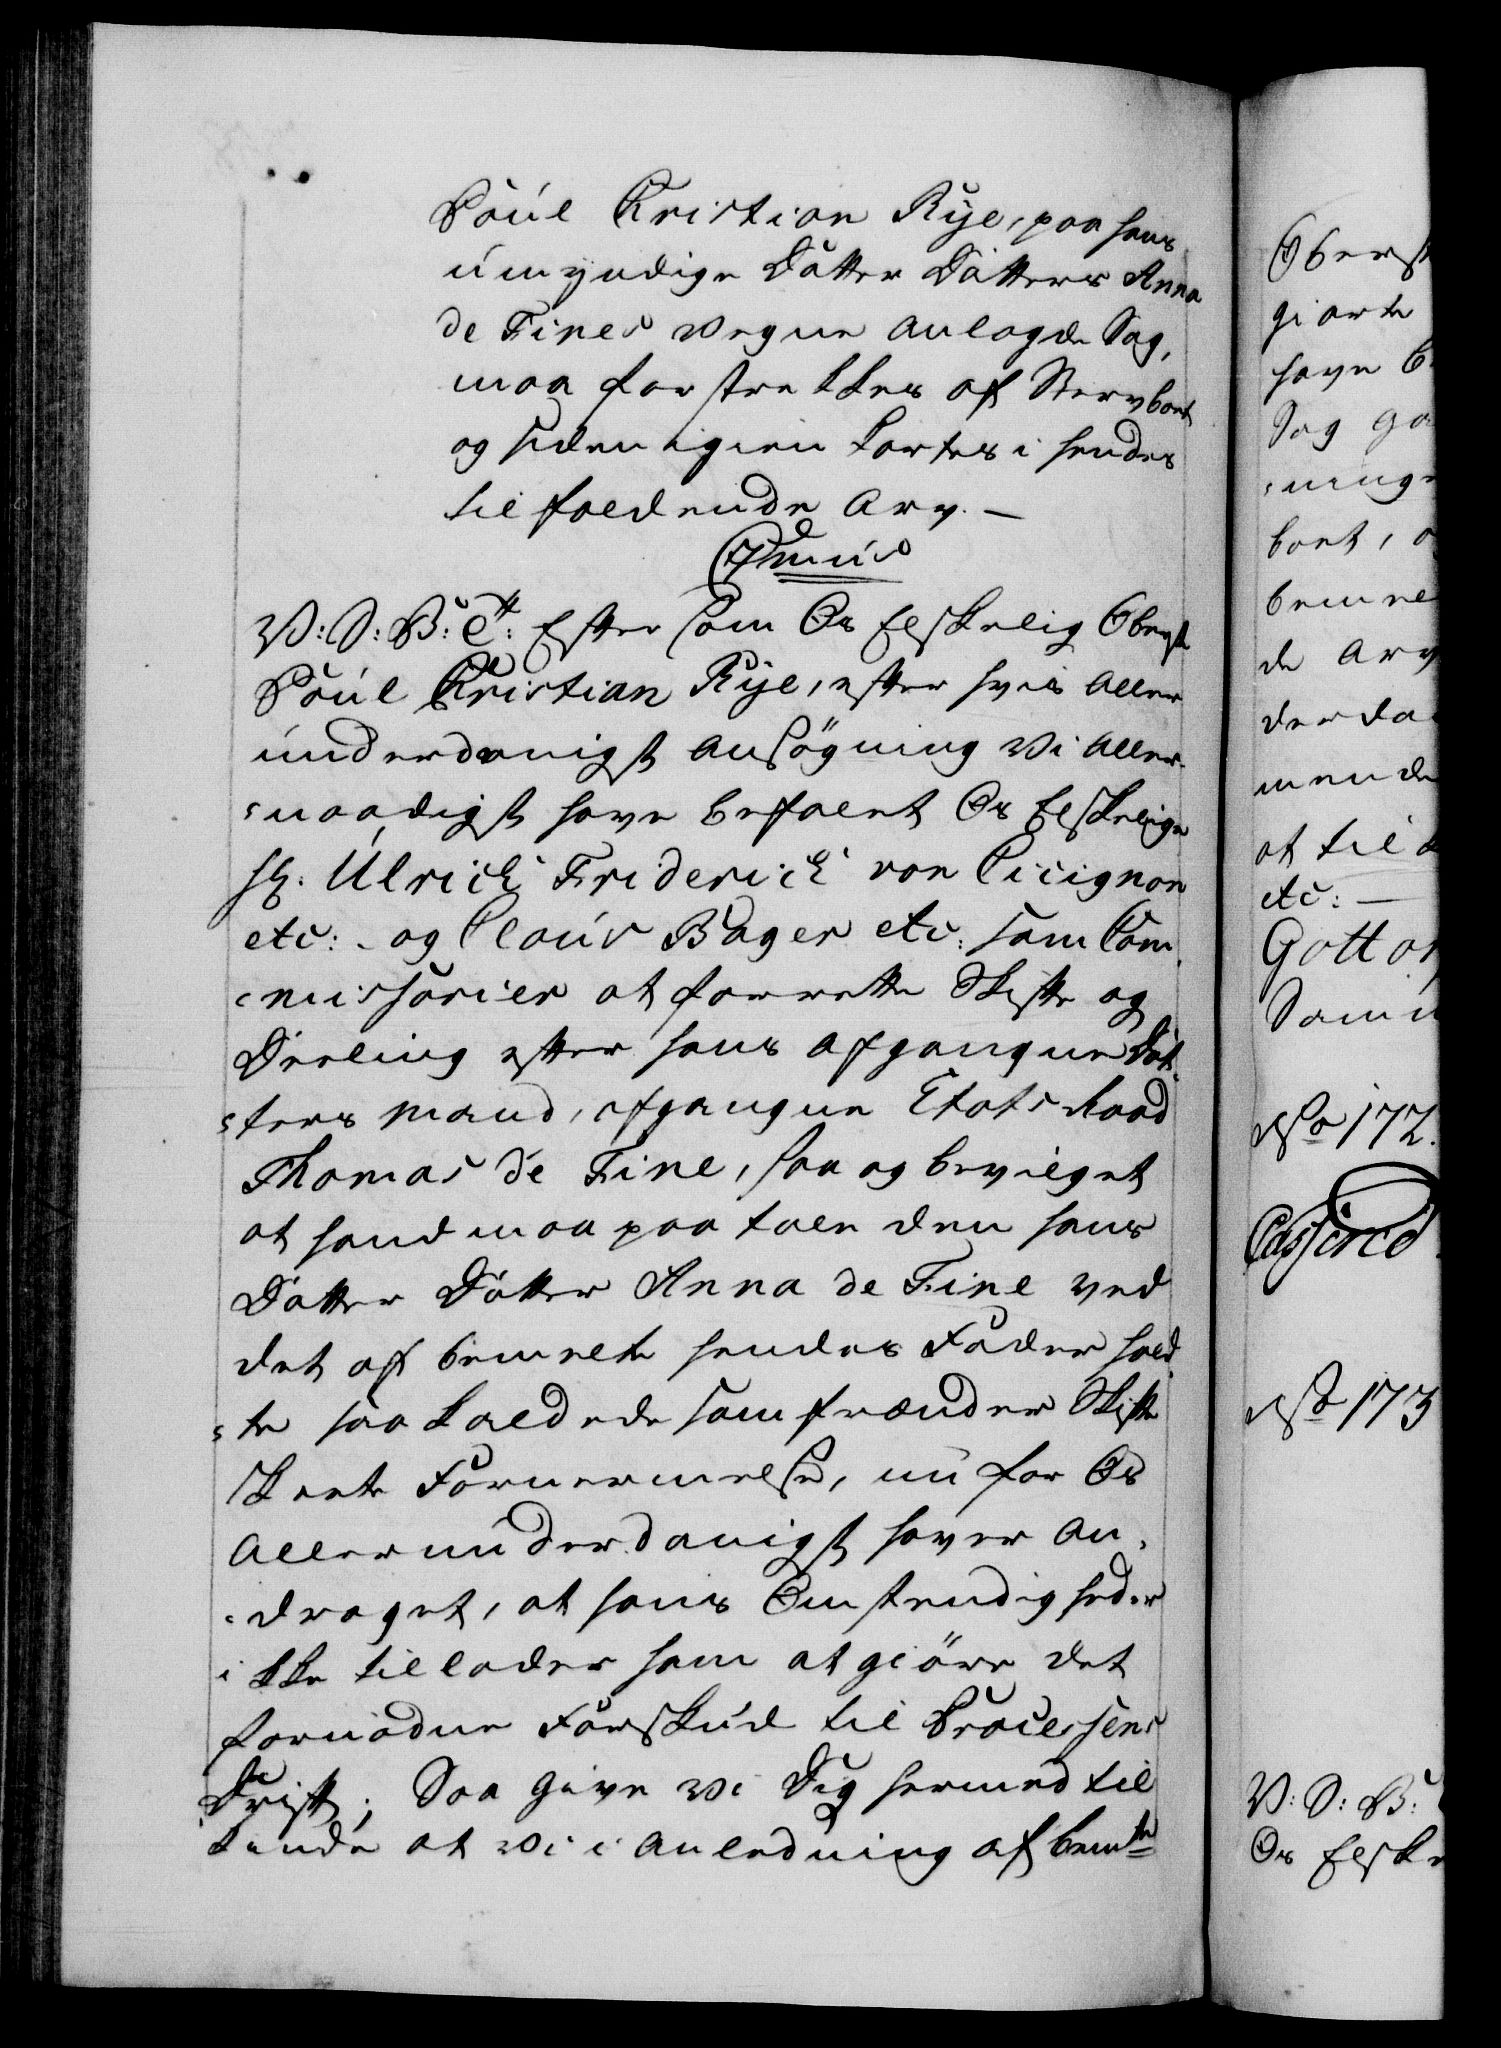 Poúl Kristian Rÿe, paa hans
úmyndige Datter Datters Anna
de Fines Vegne anlagde Sag,
maa forstrekkes af Stervboet
og siden igien kortes i hendes
tilfaldende Arv. —
V: S: B: Eftersom Os Elskelig Oberst
Poúl Kristian Rÿe, efter hvis aller
únderdanigst Ansögning Vi Aller-
naadigst have befalet Os Elskelige
Hr. Úlrich Friderich von Cicignon
etc: og Claús Bager etc: som Com
missarier at forrette Skifte og
Deeling efter hans afgangne Dat
ters Mand, afgangne Etats Raad
Thomas de Fine, saa og bevilget
at hand maa paatale den hans
Datter Datter Anna de Fine ved
det af bemelte hendes Fader hold
te saa kaldede samfrænder Skifte
skeete Fornermelse, nú for Os
allerúnderdanigst haver an
draget, at hans Omstendigheder
ikke tillader ham at giöre det
fornödne Forskúd til Processens
Drift; Saa give Vi Dig hermed til
kiende at Vi i Anledning af bemte
Oberst
giorte
have
Sag
boet,
de Arv
at til
etc: —
Gottor
No 172.
Cassered
No 173
V: S: B:
Os Elske